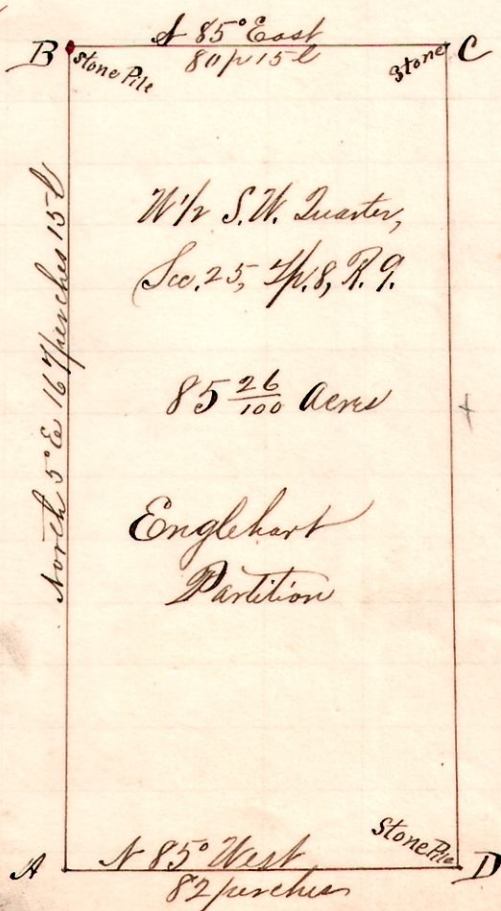 S 85° East
80 p 15 l
B
Stone Pile
Stone
C
North 5° E 167 perches 15 l
W 1/2 S.W. Quarter,
Sec. 25, Tp. 8, R. 9.
85 26/100 Acres
Englehart
Partition
Stone Pile
A
N 85° West
D
82 perches